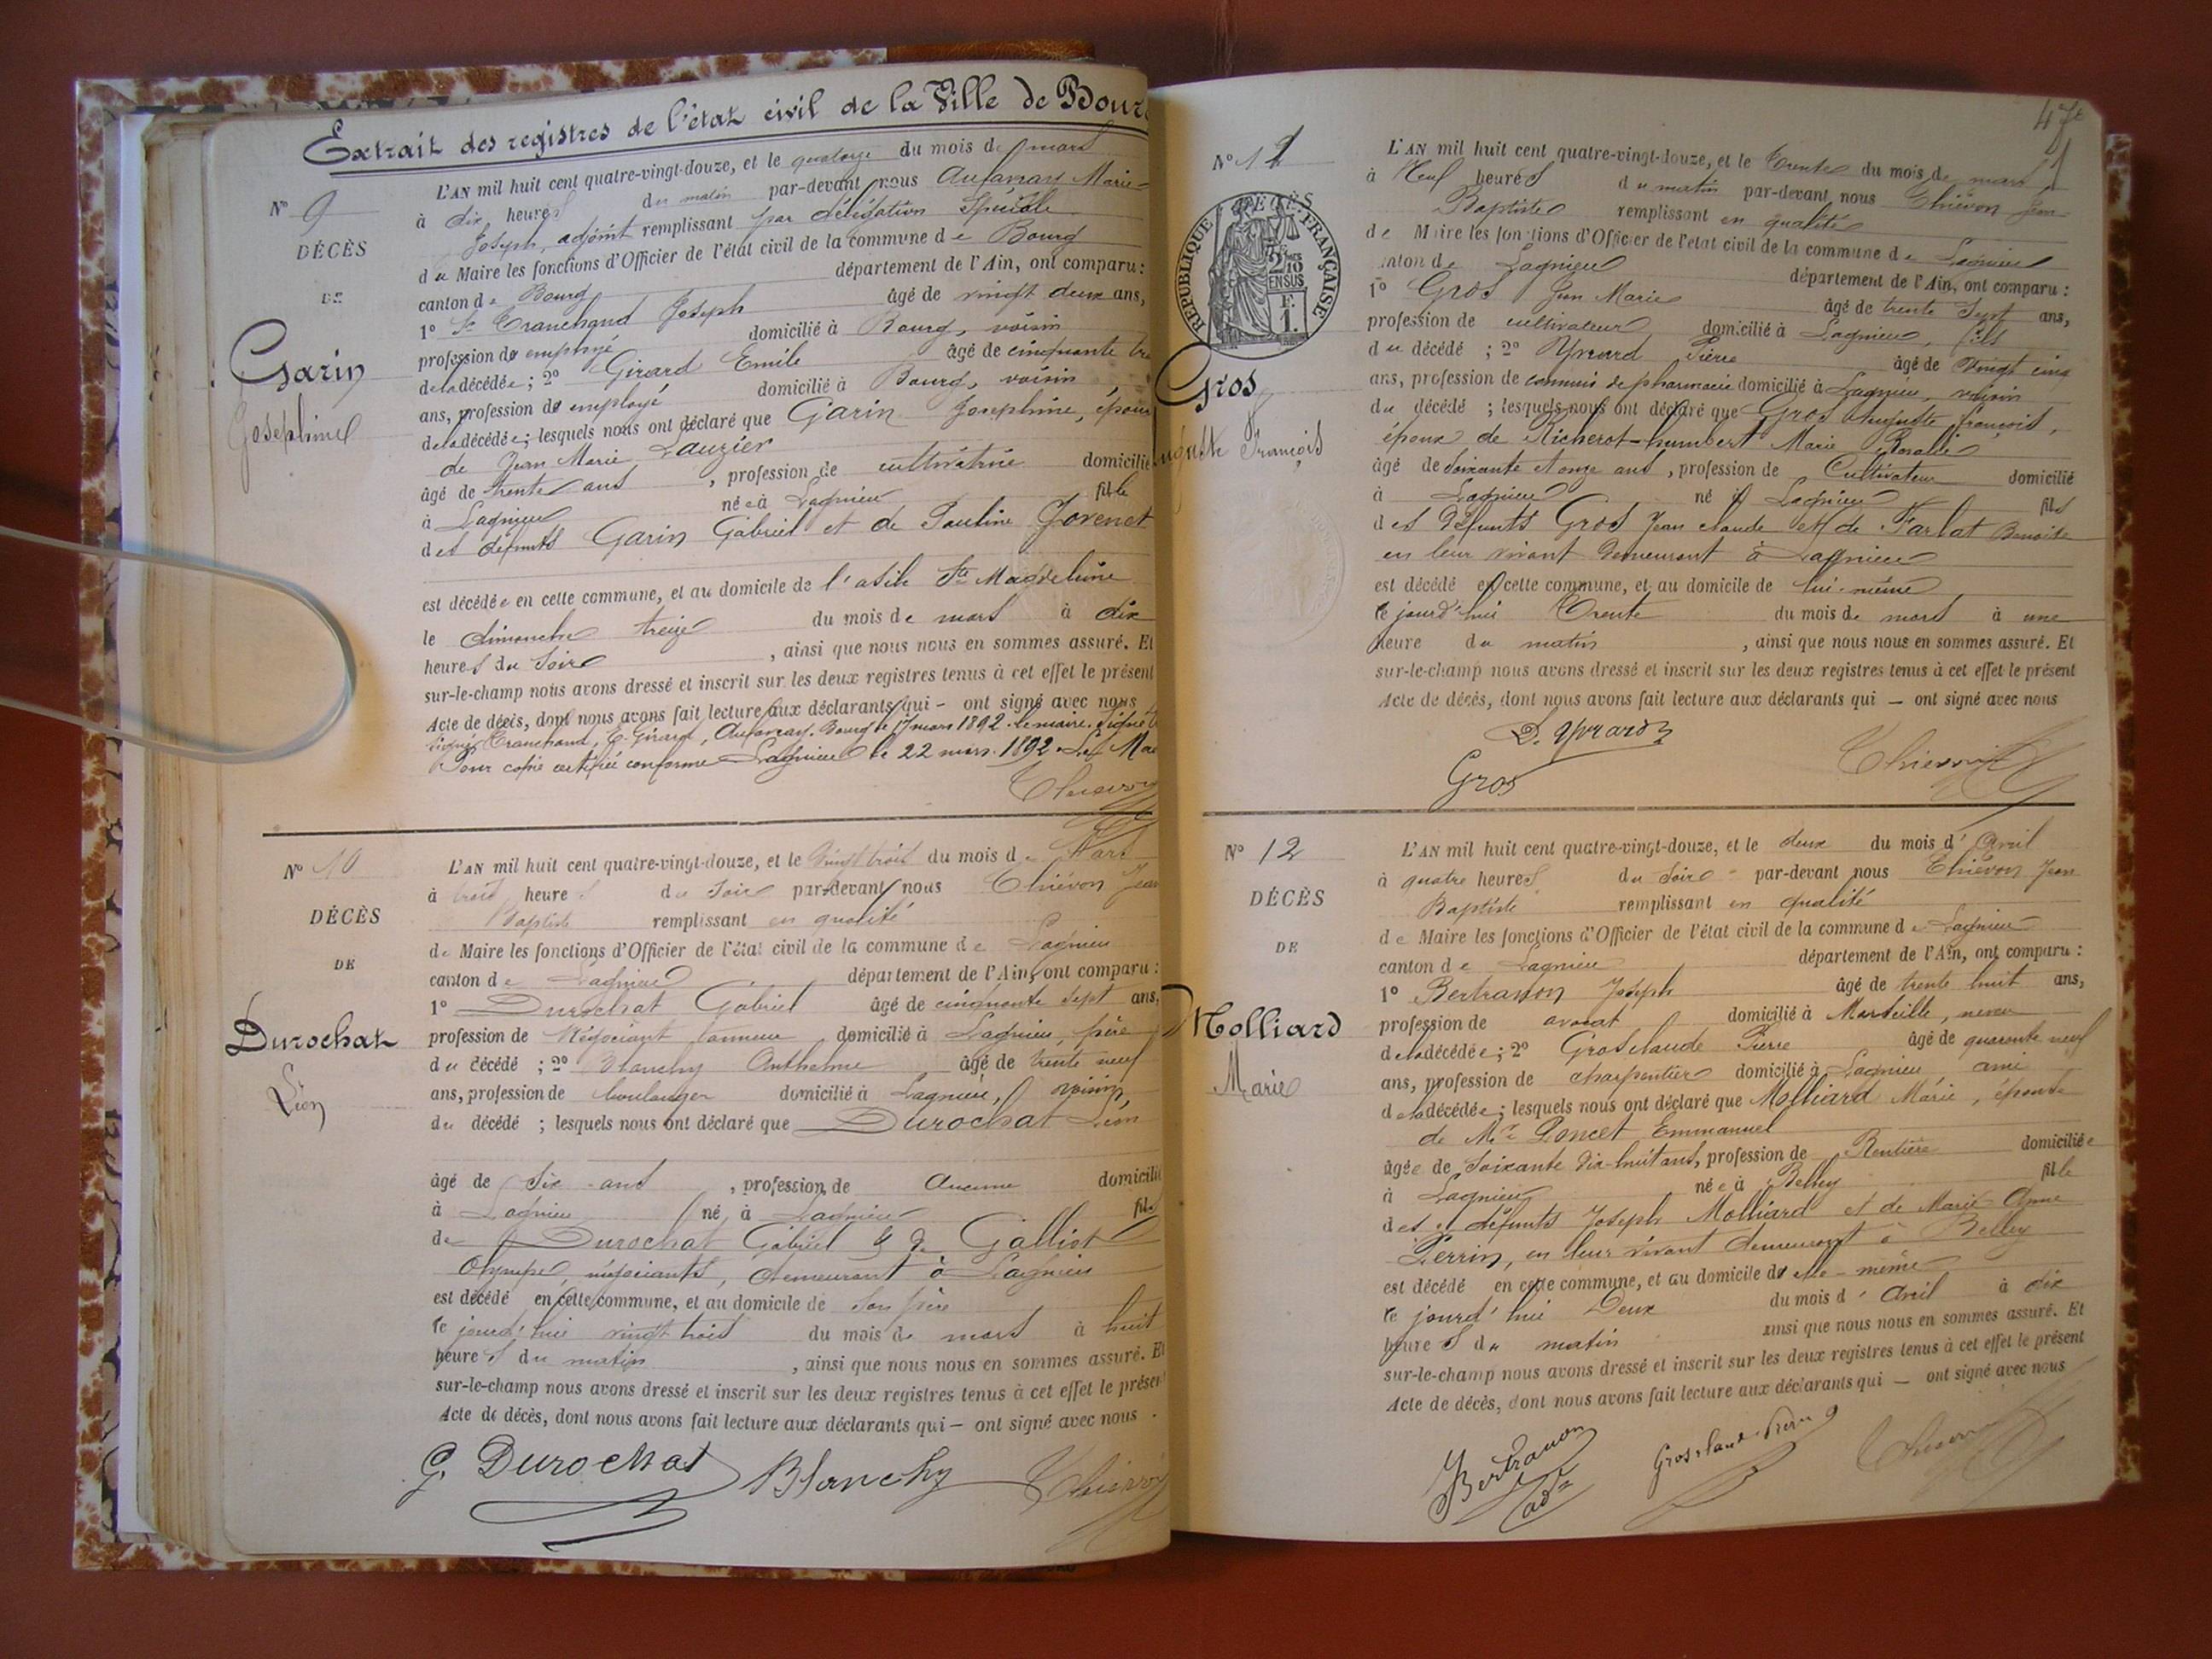 Extrait des registres de l'état civil de la Ville de Bour
N° 9
DÉCÈS
DE
Garin
Joséphine
L'AN mil huit cent quatre-vingt-douze, et le quatorze du mois de mars
à dix heures du matin par-devant nous Aufavray Marie-
Joseph, adjoint remplissant par délégation Spéciale
du Maire les fonctions d'Officier de l'état civil de la commune de Bourg
canton de Bourg département de l'Ain, ont comparu :
1° Sr Tranchand Joseph âgé de vingt deux ans,
profession de employé domicilié à Bourg, voisin
de la décédée ; 2° Girard Emile âgé de cinquante tr
ans, profession de employé domicilié à Bourg, voisin
de la décédée ; lesquels nous ont déclaré que Garin Joséphine, épous
de Jean Marie Lauzier
âgé de trente ans, profession de cultivatrice domicilié
à Lagnieu née à Lagnieu fille
des défunts Garin Gabriel et de Pauline Jovenet
est décédée en cette commune, et au domicile de l'asile Ste Magdeleine
le dimanche treize du mois de mars à dix
heures du Soir, ainsi que nous nous en sommes assuré. Et
sur-le-champ nous avons dressé et inscrit sur les deux registres tenus à cet effet le présent
Acte de décès, dont nous avons fait lecture aux déclarants qui - ont signé avec nous
Signé Tranchand, E. Girard, Aufavray. Bourg le 17 mars 1892. le maire. Signé
Pour copie certifiée conforme Lagnieu le 22 mars 1892. Le Mai
Thiévon
N° 10
DÉCÈS
DE
Durochat
Léon
L'AN mil huit cent quatre-vingt-douze, et le vingt trois du mois de Mars
à trois heures du Soir par-devant nous Thiévon Jean
Baptiste remplissant en qualité
de Maire les fonctions d'Officier de l'état civil de la commune de Lagnieu
canton de Lagnieu département de l'Ain, ont comparu :
1° Durochat Gabriel âgé de cinquante sept ans,
profession de Négociant tanneur domicilié à Lagnieu, père
du décédé ; 2° Blanchy Anthelme âgé de trente neuf
ans, profession de boulanger domicilié à Lagnieu, voisin
du décédé ; lesquels nous ont déclaré que Durochat Léon
âgé de Six ans, profession de Aucune domicilié
à Lagnieu né à Lagnieu fils
de Durochat Gabriel & de Galliot
Olympe, négociants, demeurant à Lagnieu
est décédé en cette commune, et au domicile de Son père
ce jourd'hui vingt trois du mois de mars à huit
heures du matin, ainsi que nous nous en sommes assuré. Et
sur-le-champ nous avons dressé et inscrit sur les deux registres tenus à cet effet le présen
Acte de décès, dont nous avons fait lecture aux déclarants qui - ont signé avec nous.
G. Durochat Blanchy Thiévon
47e
N° 11
RÉPUBLIQUE FRANÇAISE
2/10 EN SUS
F. 1.
Gros
Auguste François
L'AN mil huit cent quatre-vingt-douze, et le Trente du mois de mars
à Neuf heures du matin par-devant nous Thiévon Jean
Baptiste remplissant en qualité
de Maire les fonctions d'Officier de l'état civil de la commune de Lagnieu
canton de Lagnieu département de l'Ain, ont comparu :
1° Gros Jean Marie âgé de trente Sept ans,
profession de cultivateur domicilié à Lagnieu, fils
du décédé ; 2° Yvrard Pierre âgé de vingt cinq
ans, profession de commis de pharmacie domicilié à Lagnieu, voisin
du décédé ; lesquels nous ont déclaré que Gros Auguste François,
époux de Richerot-humbert Marie Rosalie
âgé de Soixante et onze ans, profession de Cultivateur domicilié
à Lagnieu né à Lagnieu fils
des Défunts Gros Jean claude et de Farlat Benoite
en leur vivant demeurant à Lagnieu
est décédé en cette commune, et au domicile de lui-même
ce jourd'hui Trente du mois de mars à une
heure du matin, ainsi que nous nous en sommes assuré. Et
sur-le-champ nous avons dressé et inscrit sur les deux registres tenus à cet effet le présent
Acte de décès, dont nous avons fait lecture aux déclarants qui — ont signé avec nous
P. Yvrard
Gros Thiévon
N° 12
DÉCÈS
DE
Molliard
Marie
L'AN mil huit cent quatre-vingt-douze, et le deux du mois d'Avril
à quatre heures du Soir par-devant nous Thiévon Jean
Baptiste remplissant en qualité
de Maire les fonctions d'Officier de l'état civil de la commune de Lagnieu
canton de Lagnieu département de l'Ain, ont comparu :
1° Bertranon Joseph âgé de trente huit ans,
profession de avocat domicilié à Marseille, neveu
de la décédée ; 2° Grosclaude Pierre âgé de quarante neuf
ans, profession de charpentier domicilié à Lagnieu ami
de la décédée ; lesquels nous ont déclaré que Molliard Marie, épouse
de Mr Poncet Emmanuel
âgée de Soixante Dix-huit ans, profession de Rentière domiciliée
à Lagnieu née à Belley fille
des défunts Joseph Molliard et de Marie Anne
Perrin, en leur vivant demeurant à Belley
est décédé en cette commune, et au domicile de elle-même
ce jourd'hui Deux du mois d'Avril à dix
heures du matin ainsi que nous nous en sommes assuré. Et
sur-le-champ nous avons dressé et inscrit sur les deux registres tenus à cet effet le présent
Acte de décès, dont nous avons fait lecture aux déclarants qui — ont signé avec nous
J. Bertranon Grosclaude Pierre Thiévon